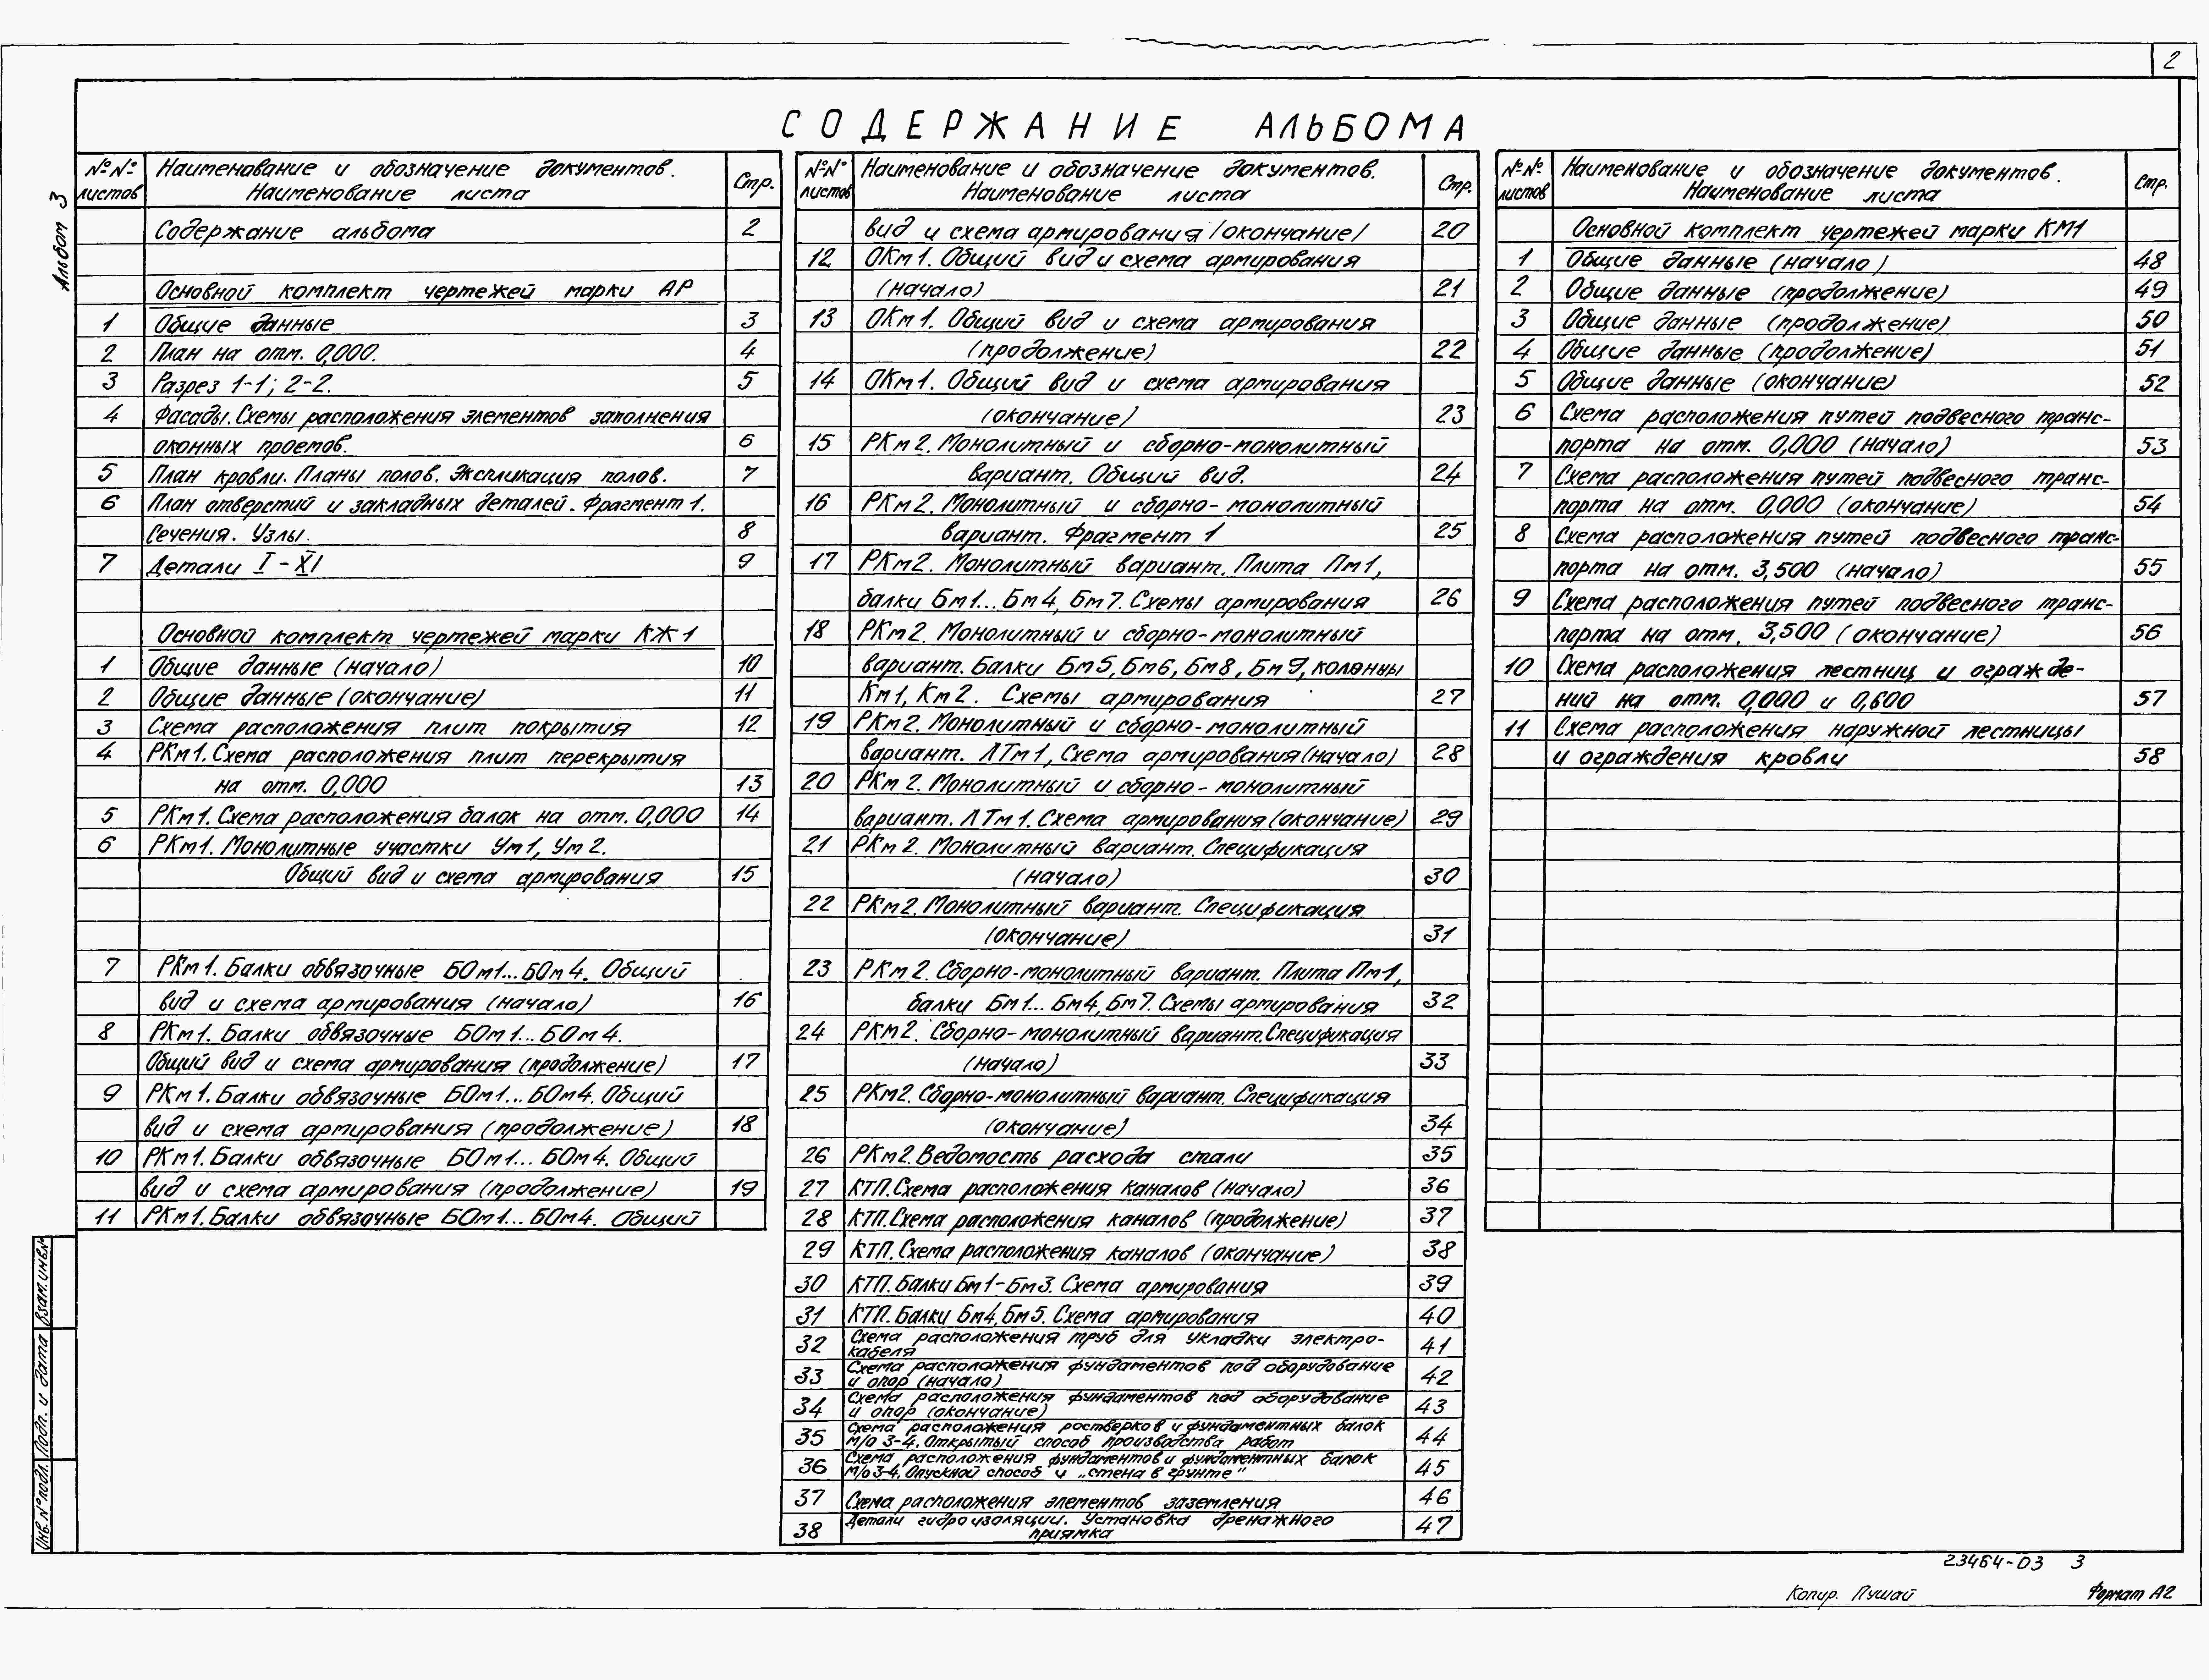 2
СОДЕРЖАНИЕ АЛЬБОМА
Альбом 3
№№ листов Наименование и обозначение документов. Наименование листа Стр.
Содержание альбома 2
Основной комплект чертежей марки АР
1 Общие данные 3
2 План на отм. 0,000. 4
3 Разрез 1-1; 2-2. 5
4 Фасады. Схемы расположения элементов заполнения
оконных проемов. 6
5 План кровли. Планы полов. Экспликация полов. 7
6 План отверстий и закладных деталей. Фрагмент 1.
Сечения. Узлы. 8
7 Детали I - XI 9
Основной комплект чертежей марки КЖ1
1 Общие данные (начало) 10
2 Общие данные (окончание) 11
3 Схема расположения плит покрытия 12
4 РКм1. Схема расположения плит перекрытия
на отм. 0,000 13
5 РКм1. Схема расположения балок на отм. 0,000 14
6 РКм1. Монолитные участки Ум1, Ум2.
Общий вид и схема армирования 15
7 РКм1. Балки обвязочные БОм1... БОм4. Общий
вид и схема армирования (начало) 16
8 РКм1. Балки обвязочные БОм1... БОм4.
Общий вид и схема армирования (продолжение) 17
9 РКм1. Балки обвязочные БОм1... БОм4. Общий
вид и схема армирования (продолжение) 18
10 РКм1. Балки обвязочные БОм1... БОм4. Общий
вид и схема армирования (продолжение) 19
11 РКм1. Балки обвязочные БОм1... БОм4. Общий
№№ листов Наименование и обозначение документов. Наименование листа Стр.
вид и схема армирования /окончание/ 20
12 ОКм1. Общий вид и схема армирования
(начало) 21
13 ОКм1. Общий вид и схема армирования
(продолжение) 22
14 ОКм1. Общий вид и схема армирования
(окончание) 23
15 РКм2. Монолитный и сборно-монолитный
вариант. Общий вид. 24
16 РКм2. Монолитный и сборно-монолитный
вариант. Фрагмент 1 25
17 РКм2. Монолитный вариант. Плита Пм1,
балки Бм1... Бм4, Бм7. Схемы армирования 26
18 РКм2. Монолитный и сборно-монолитный
вариант. Балки Бм5, Бм6, Бм8, Бм9, колонны
Км1, Км2. Схемы армирования 27
19 РКм2. Монолитный и сборно-монолитный
вариант. ЛТм1, Схема армирования (начало) 28
20 РКм2. Монолитный и сборно-монолитный
вариант. ЛТм1. Схема армирования (окончание) 29
21 РКм2. Монолитный вариант. Спецификация
(начало) 30
22 РКм2. Монолитный вариант. Спецификация
(окончание) 31
23 РКм2. Сборно-монолитный вариант. Плита Пм1,
балки Бм1... Бм4, Бм7. Схемы армирования 32
24 РКм2. Сборно-монолитный вариант. Спецификация
(начало) 33
25 РКм2. Сборно-монолитный вариант. Спецификация
(окончание) 34
26 РКм2. Ведомость расхода стали 35
27 КТП. Схема расположения каналов (начало) 36
28 КТП. Схема расположения каналов (продолжение) 37
29 КТП. Схема расположения каналов (окончание) 38
30 КТП. Балки Бм1-Бм3. Схема армирования 39
31 КТП. Балки Бм4, Бм5. Схема армирования 40
32 Схема расположения труб для укладки электро-
кабеля 41
33 Схема расположения фундаментов под оборудование
и опор (начало) 42
34 Схема расположения фундаментов под оборудование
и опор (окончание) 43
35 Схема расположения ростверков и фундаментных балок
м/о 3-4. Открытый способ производства работ 44
36 Схема расположения фундаментов и фундаментных балок
м/о 3-4. Опускной способ и „стена в грунте" 45
37 Схема расположения элементов заземления 46
38 Детали гидроизоляции. Установка дренажного
приямка 47
№№ листов Наименование и обозначение документов. Наименование листа Стр.
Основной комплект чертежей марки КМ1
1 Общие данные (начало) 48
2 Общие данные (продолжение) 49
3 Общие данные (продолжение) 50
4 Общие данные (продолжение) 51
5 Общие данные (окончание) 52
6 Схема расположения путей подвесного транс-
порта на отм. 0,000 (начало) 53
7 Схема расположения путей подвесного транс-
порта на отм. 0,000 (окончание) 54
8 Схема расположения путей подвесного транс-
порта на отм. 3,500 (начало) 55
9 Схема расположения путей подвесного транс-
порта на отм. 3,500 (окончание) 56
10 Схема расположения лестниц и огражде-
ний на отм. 0,000 и 0,600 57
11 Схема расположения наружной лестницы
и ограждения кровли 58
Инв. № подл. Подп. и дата Взам. инв. №
23464-03 3
Копир. Пушай
Формат А2